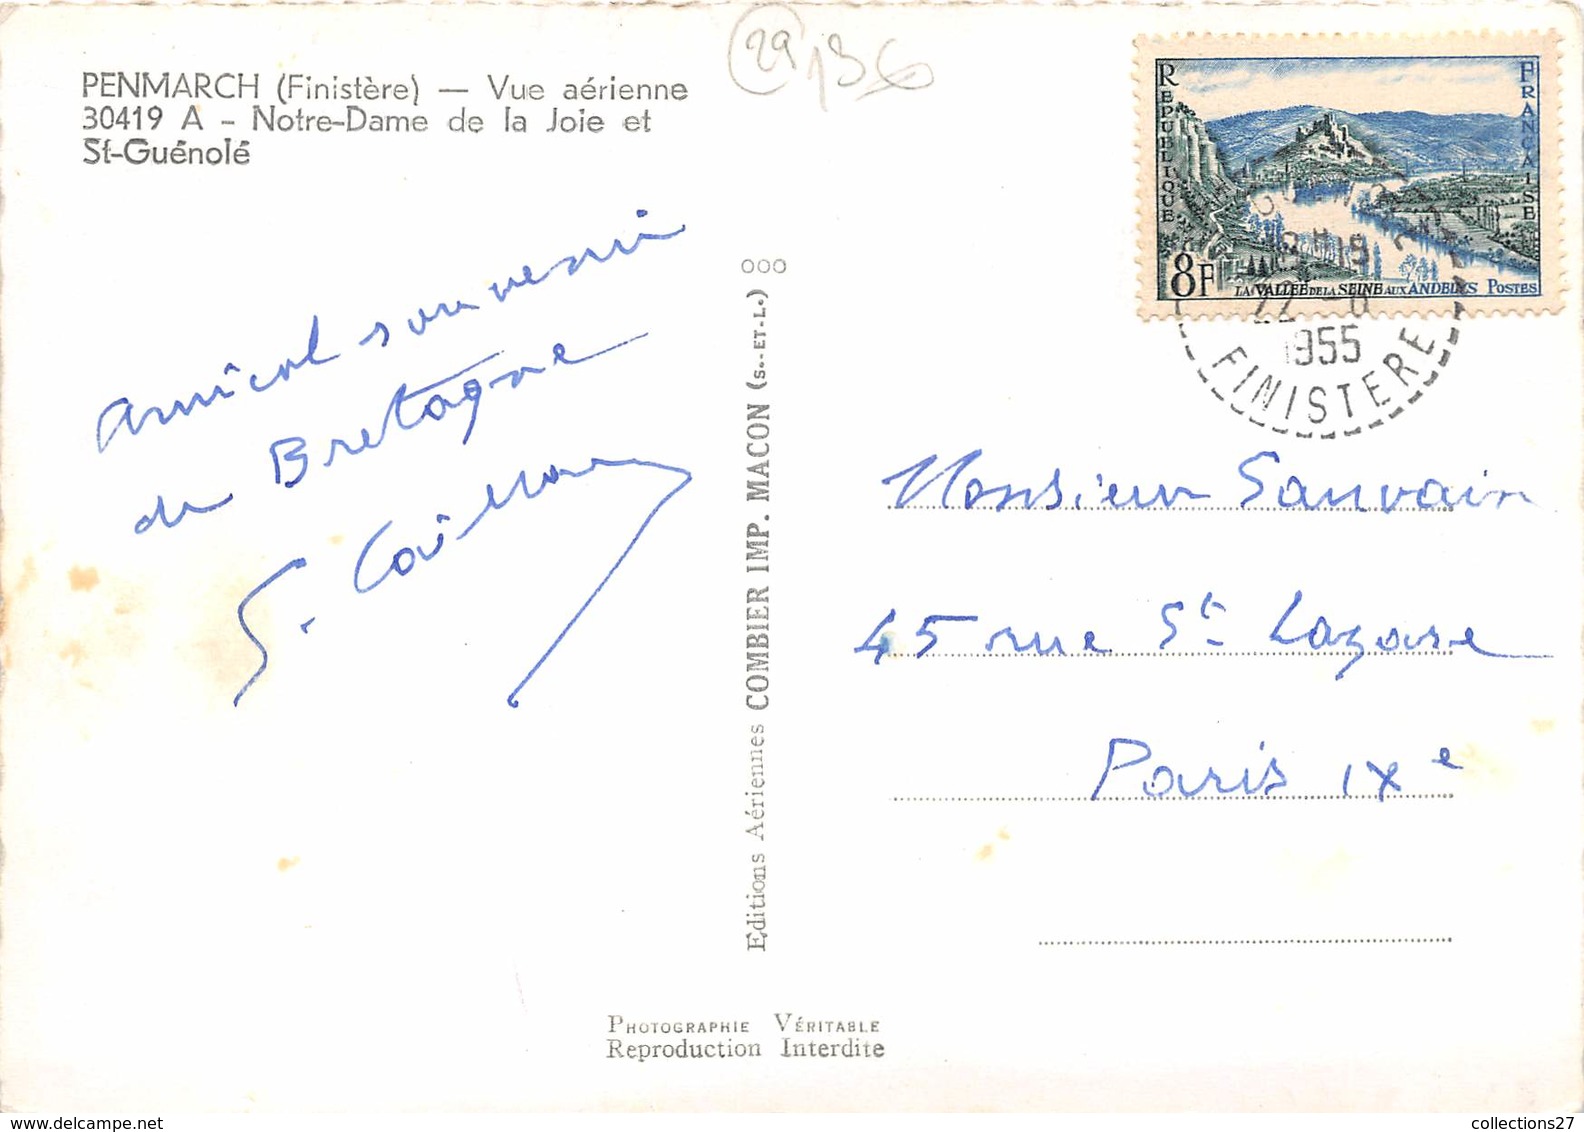 PENMARCH (Finistère) — Vue aérienne
30419 A - Notre-Dame de la Joie et
St-Guénolé
29 136
RÉPUBLIQUE FRANÇAISE
8F LA VALLÉE DE LA SEINE AUX ANDELYS POSTES
1955
FINISTERE
Amical souvenir
de Bretagne
000
Editions Aériennes COMBIER IMP. MACON (S.-ET-L.)
Monsieur Sauvain
45 rue St Lazare
Paris IXe
PHOTOGRAPHIE VÉRITABLE
Reproduction Interdite
collections27